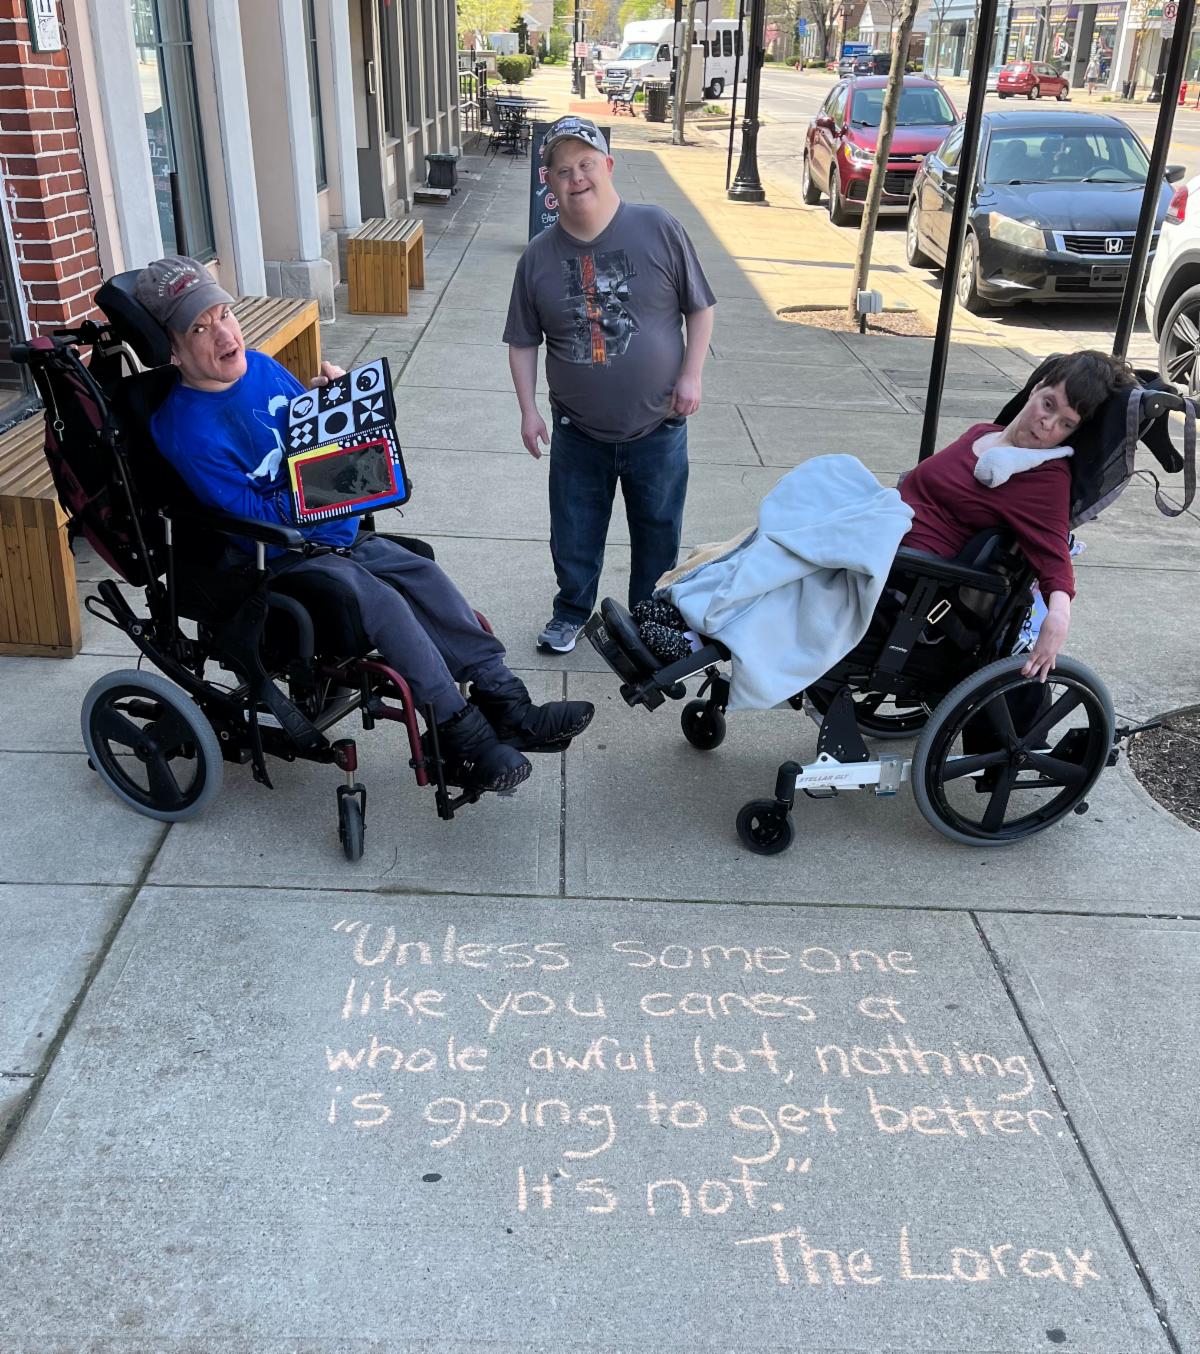 "Unless someone
like you cares a
whole awful lot, nothing
is going to get better
It's not."
The Lorax
STELLAR GLT